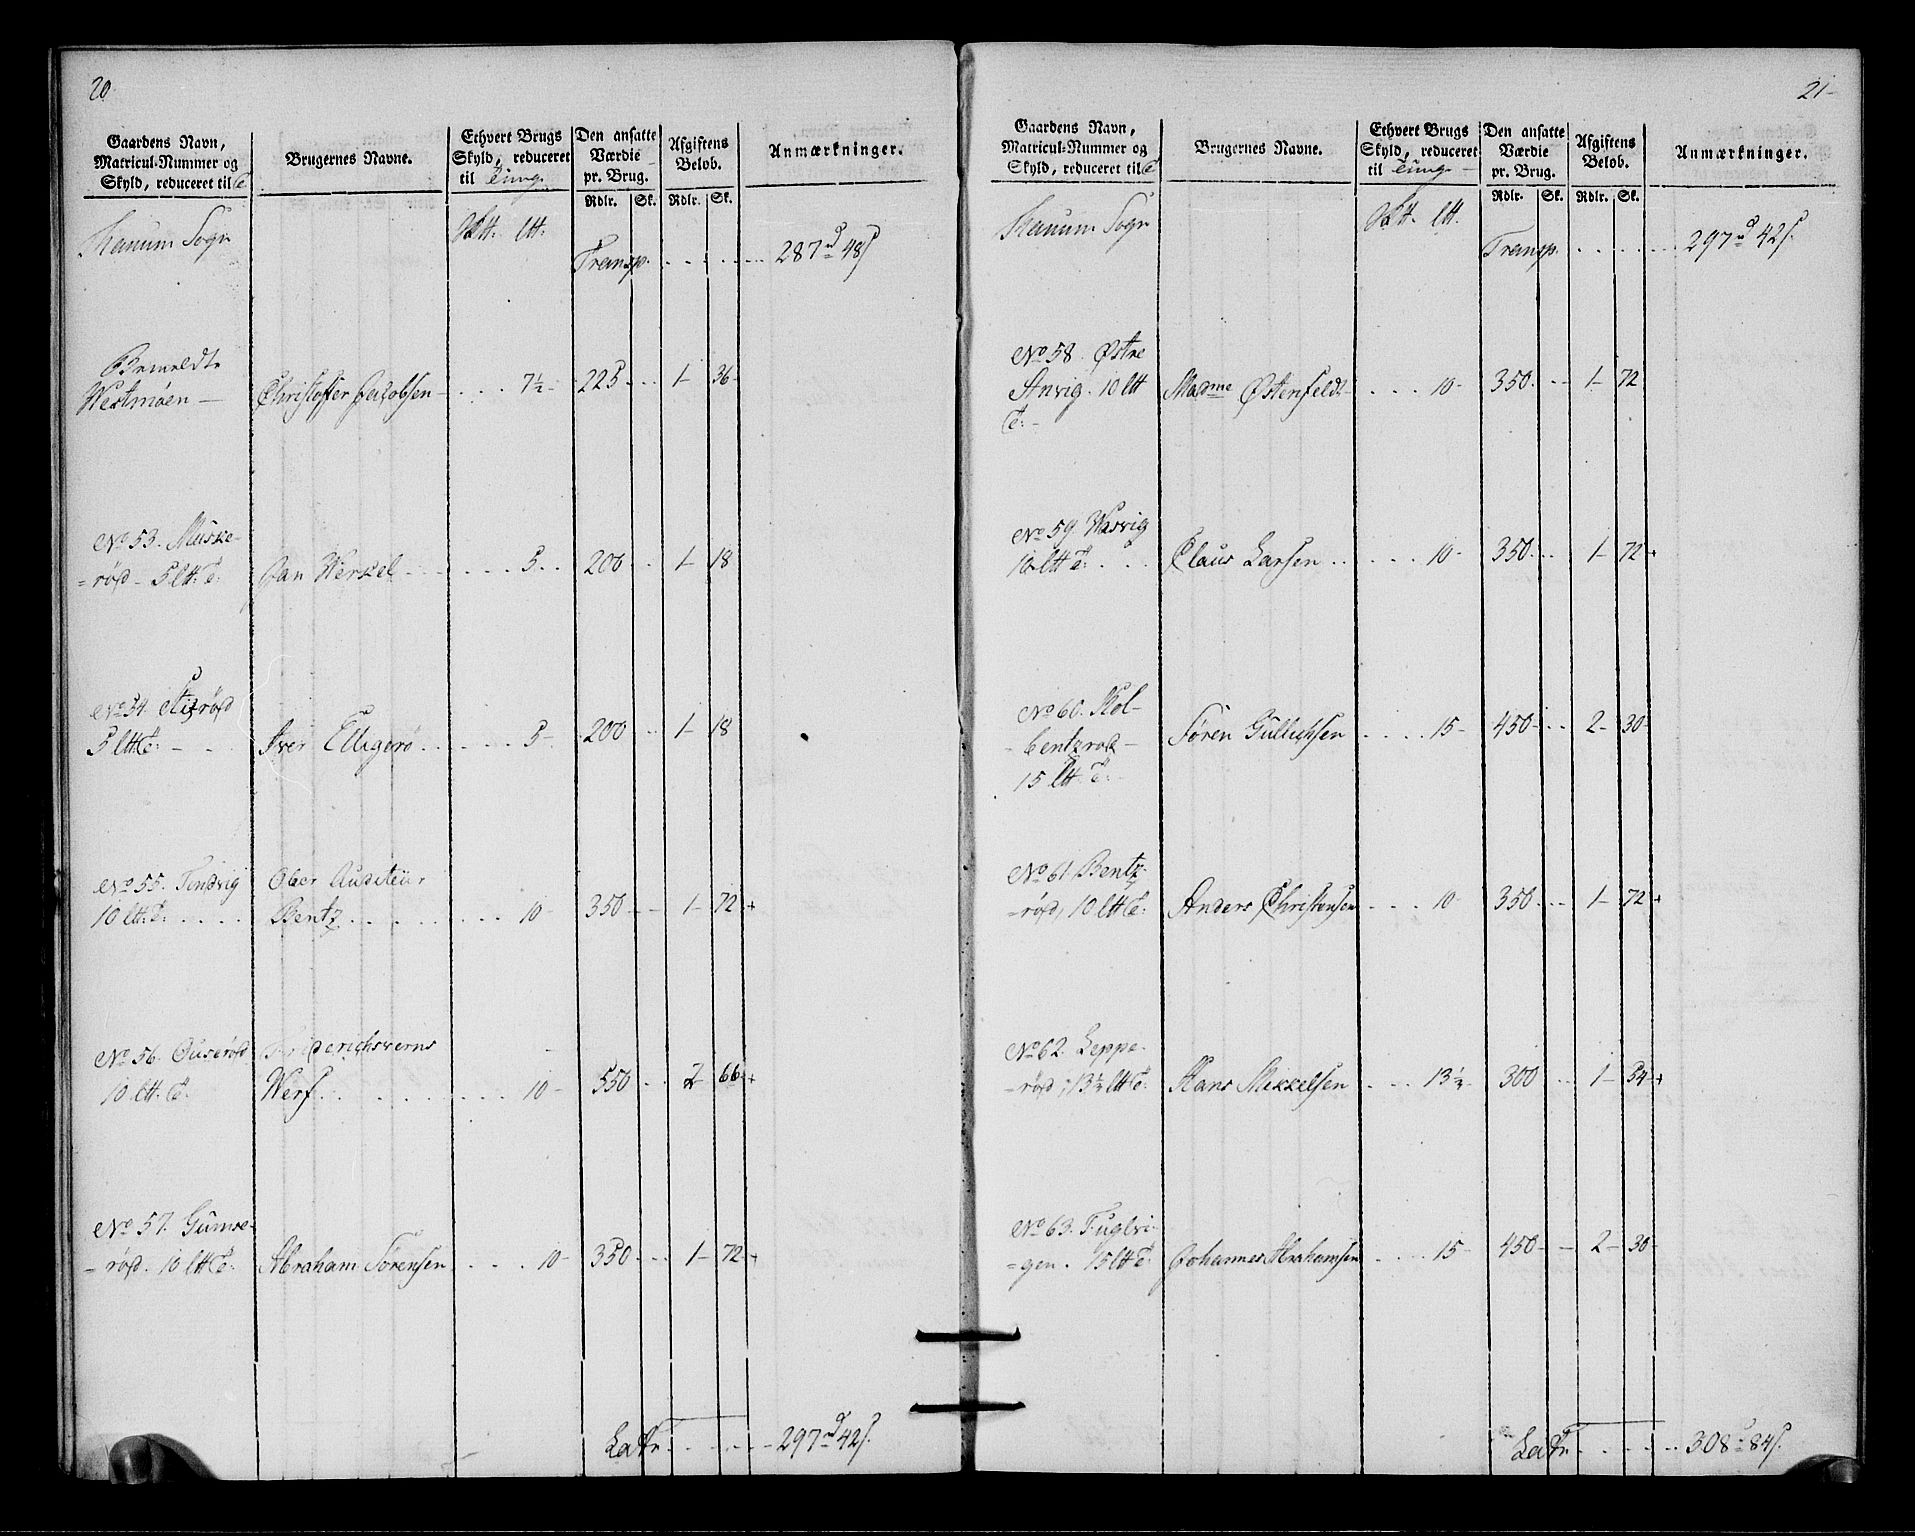 20
Gaardens Navn,
Matricul-Nummer og
Skyld, reduceret til T
Brugernes Navne.
Ethvert Brugs
Skyld, reduceret
til Tung
Den ansatte
Værdie
pr. Brug.
Rdlr. Sk.
Afgiftens
Beløb.
Rdlr. Sk.
Anmærkninger.
Hanum Sogn
Skt. ltt.
Transp. 287 d 48 s
Bemeldte
Westmöen — Christoffer Jacobsen 7½ 225 1 36
No 53. Muske-
=röd 5 ltt T: Jan Werkel 5 200 1 18
No 54.
5 ltt T: Iver Elligerø 5 200 1 18
No 55. Tindvig Ober Auditeur
10 ltt T: Bentz 10 350 1 72
No 56. Friderichsverns
10 ltt. T: Werf 10 550 2 66
No 57. Gumse-
=röd. 10 ltt T: Abraham Sörensen 10 350 1 72
Latr. 297 d 42 s
21
Gaardens Navn,
Matricul-Nummer og
Skyld, reduceret til T
Brugernes Navne.
Ethvert Brugs
Skyld, reduceret
til Tung
Den ansatte
Værdie
pr. Brug.
Rdlr. Sk.
Afgiftens
Beløb.
Rdlr. Sk.
Anmærkninger.
Hanum Sogn
Skt. ltt.
Transp. 297 d 42 s
No 58. Østre
Anvig. 10 ltt Madme Østenfeldt 10 350 1 72
T:
No 59. Wasvig
10 ltt T: Claus Larsen 10 350 1 72
No 60. Kol-
=bentzrod Sören Gullichsen 15 450 2 30
15 ltt T:
No 61 Bentz-
=röd, 10 ltt T: Anders Christensen 10 350 1 72
No 62. Leppe-
=röd, 13½ ltt T: Hans Mikkelsen 13½ 300 1 54
No 63. Fuglevi-
=gen. 15 ltt T: Johannes Abrahamsen 15 450 2 30
Latr. 308 d 84 s